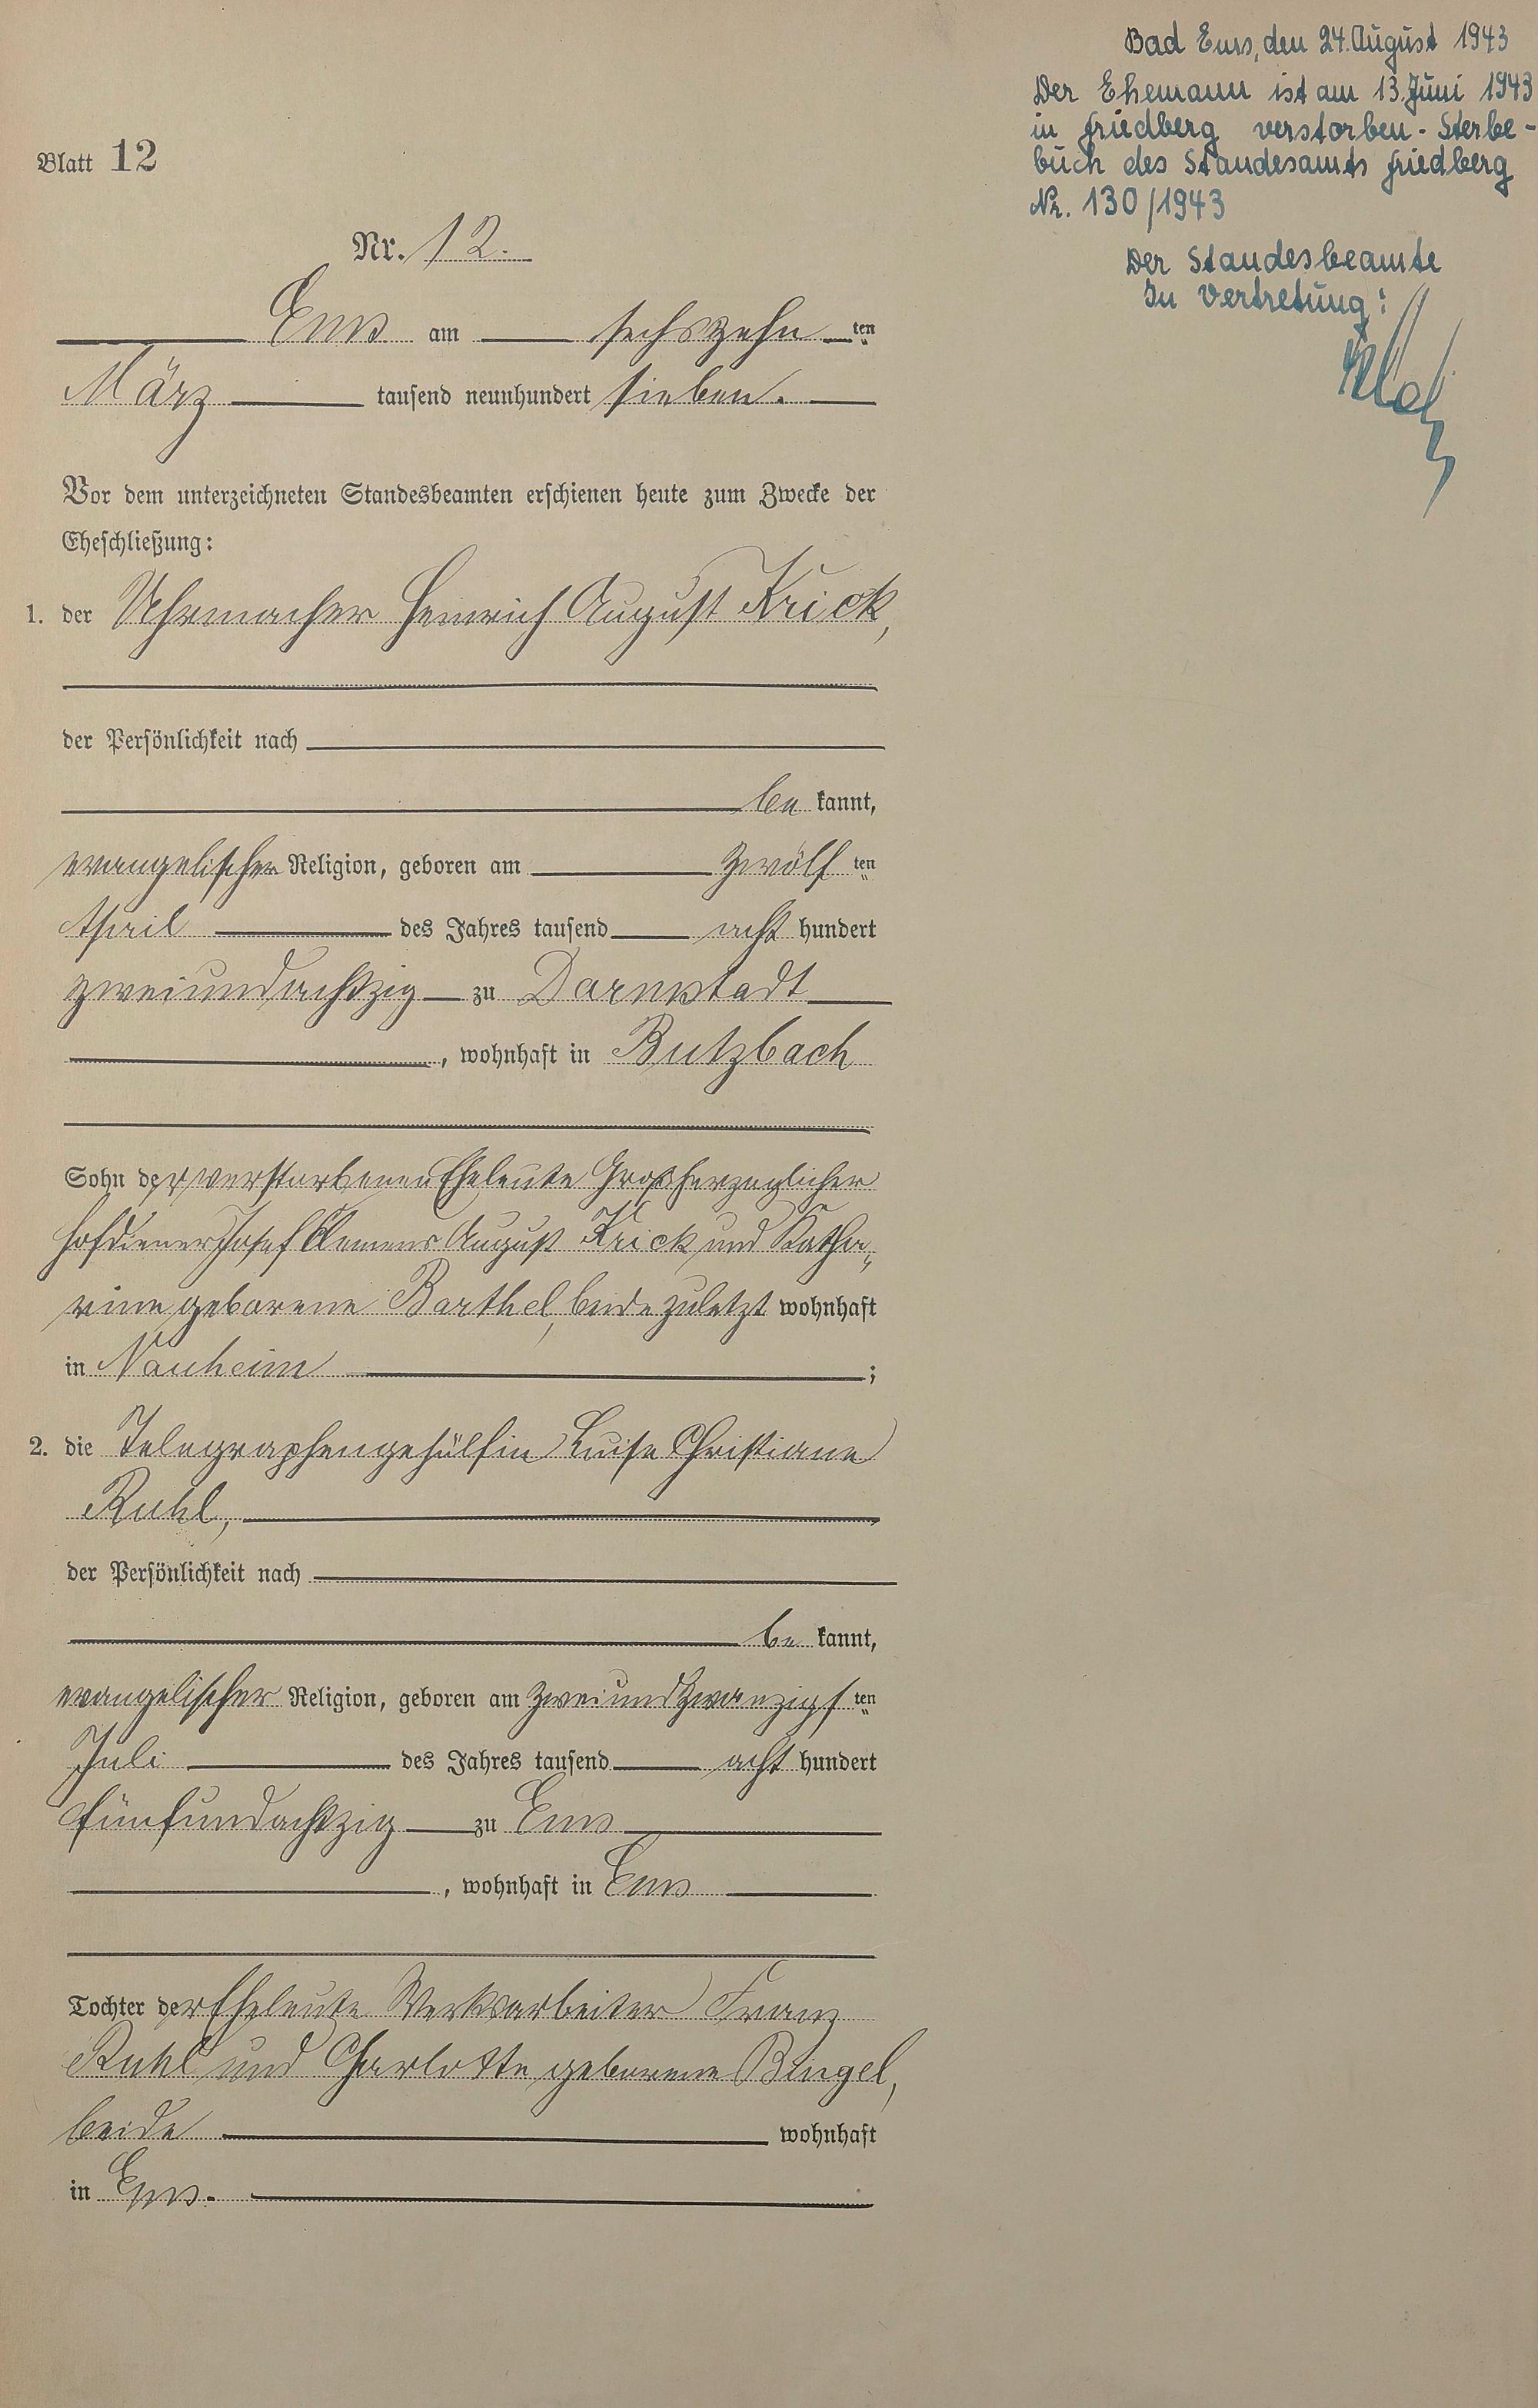 Blatt 12
Nr. 12.
Ems am sechszehnten
März tausend neunhundert sieben.
Vor dem unterzeichneten Standesbeamten erschienen heute zum Zwecke der
Eheschließung:
1. der Uhrmacher Heinrich August Krick,
der Persönlichkeit nach
be kannt,
evangelischer Religion, geboren am zwölf ten
April des Jahres tausend acht hundert
zweiundachtzig zu Darmstadt
, wohnhaft in Butzbach
Sohn der verstorbenen Eheleute Großherzoglicher
Hofdiener Josef Clemens August Krick und Katha„
rine geborene Barthel, beide zuletzt wohnhaft
in Nauheim ;
2. die Telegraphengehülfin Luise Christiane
Ruhl,
der Persönlichkeit nach
be kannt,
evangelischer Religion, geboren am zweiundzwanzigsten
Juli des Jahres tausend acht hundert
fünfundachtzig zu Ems
, wohnhaft in Ems
Tochter der Eheleute Werksarbeiter Franz
Ruhl und Charlotte geborene Bingel,
beide wohnhaft
in Ems.
Bad Ems, den 24. August 1943
Der Ehemann ist am 13. Juni 1943
in Friedberg verstorben - Sterbe-
buch des Standesamts Friedberg
Nr. 130/1943
Der Standesbeamte
In Vertretung: